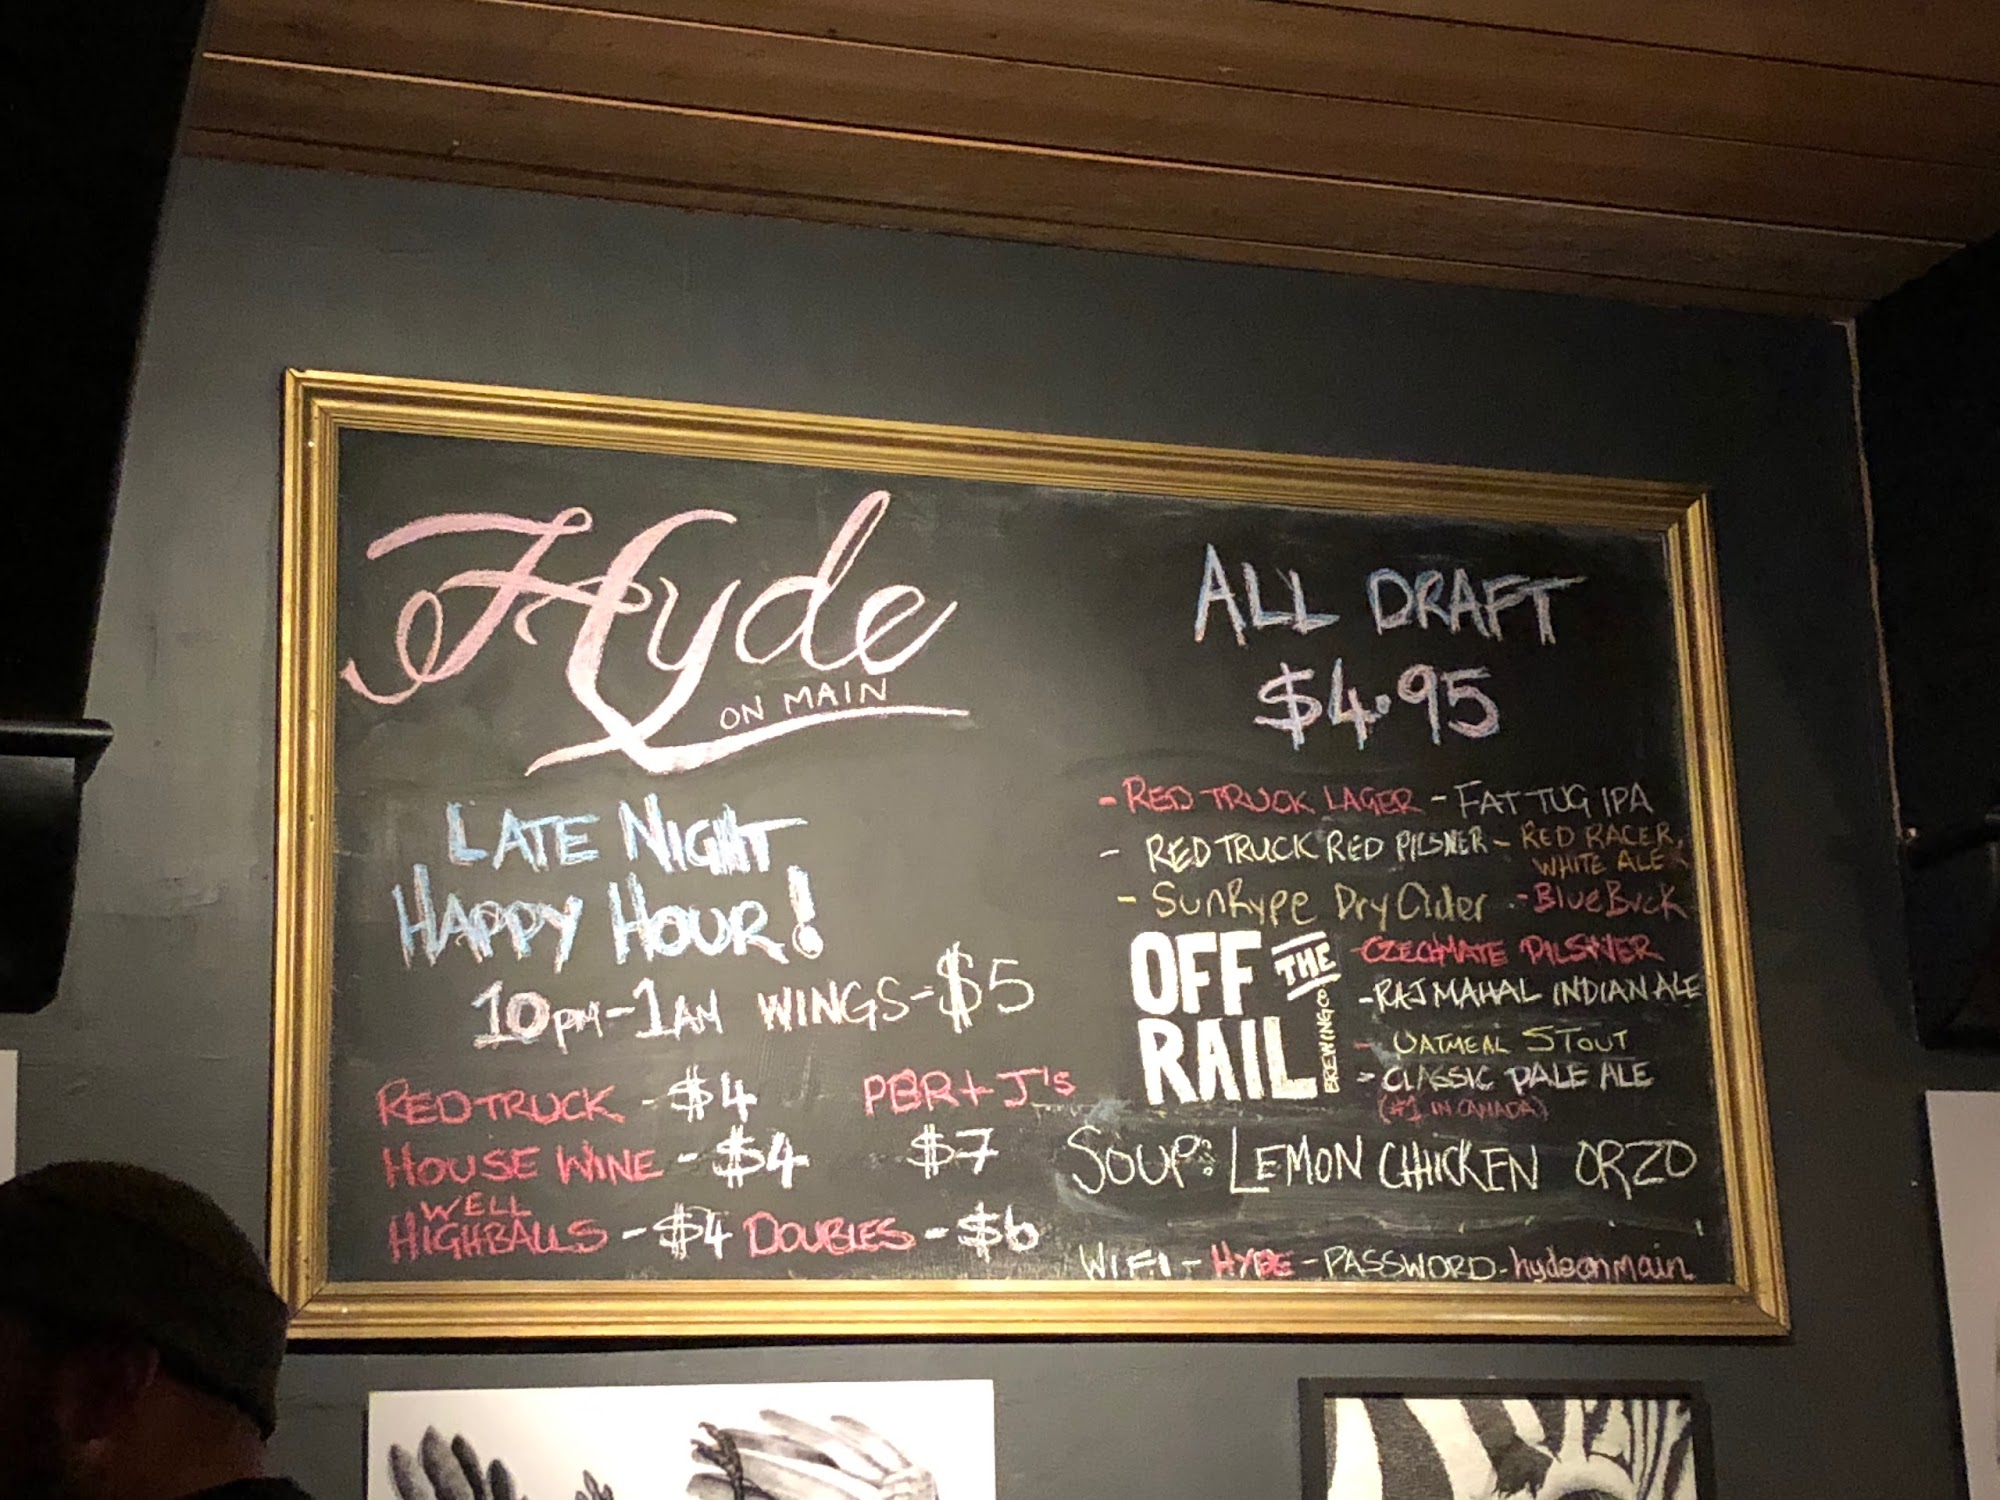 Hyde
ON MAIN
LATE NIGHT
HAPPY HOUR!
10PM-1AM WINGS-$5
RED TRUCK - $4
HOUSE WINE - $4
WELL
HIGHBALLS - $4 DOUBLES - $6
PBR + J's
$7
ALL DRAFT
$4.95
- RED TRUCK LAGER - FAT TUG IPA
- RED TRUCK RED PILSNER - RED RACER
WHITE ALE
- SunRype Dry Cider - Blue Buck
OFF THE
RAIL
BREWING Co
- CZECHMATE PILSNER
- RAJ MAHAL INDIAN ALE
- OATMEAL STOUT
- CLASSIC PALE ALE
(#1 IN CANADA)
SOUP: LEMON CHICKEN ORZO
WIFI - HYDE - PASSWORD - hydeonmain